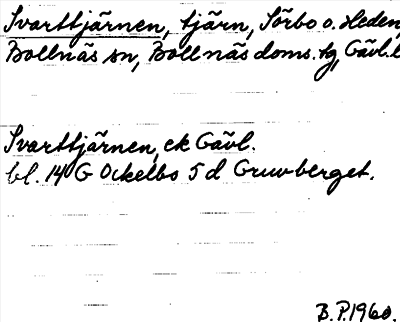 Svarttjärnen, tjärn, Sörbo o. Heden,
Bollnäs sn, Bollnäs doms. tg, Gävl. l
Svarttjärnen, ek Gävl.
bl. 14 G Ockelbo 5 d Gruvberget.
B.P. 1960.